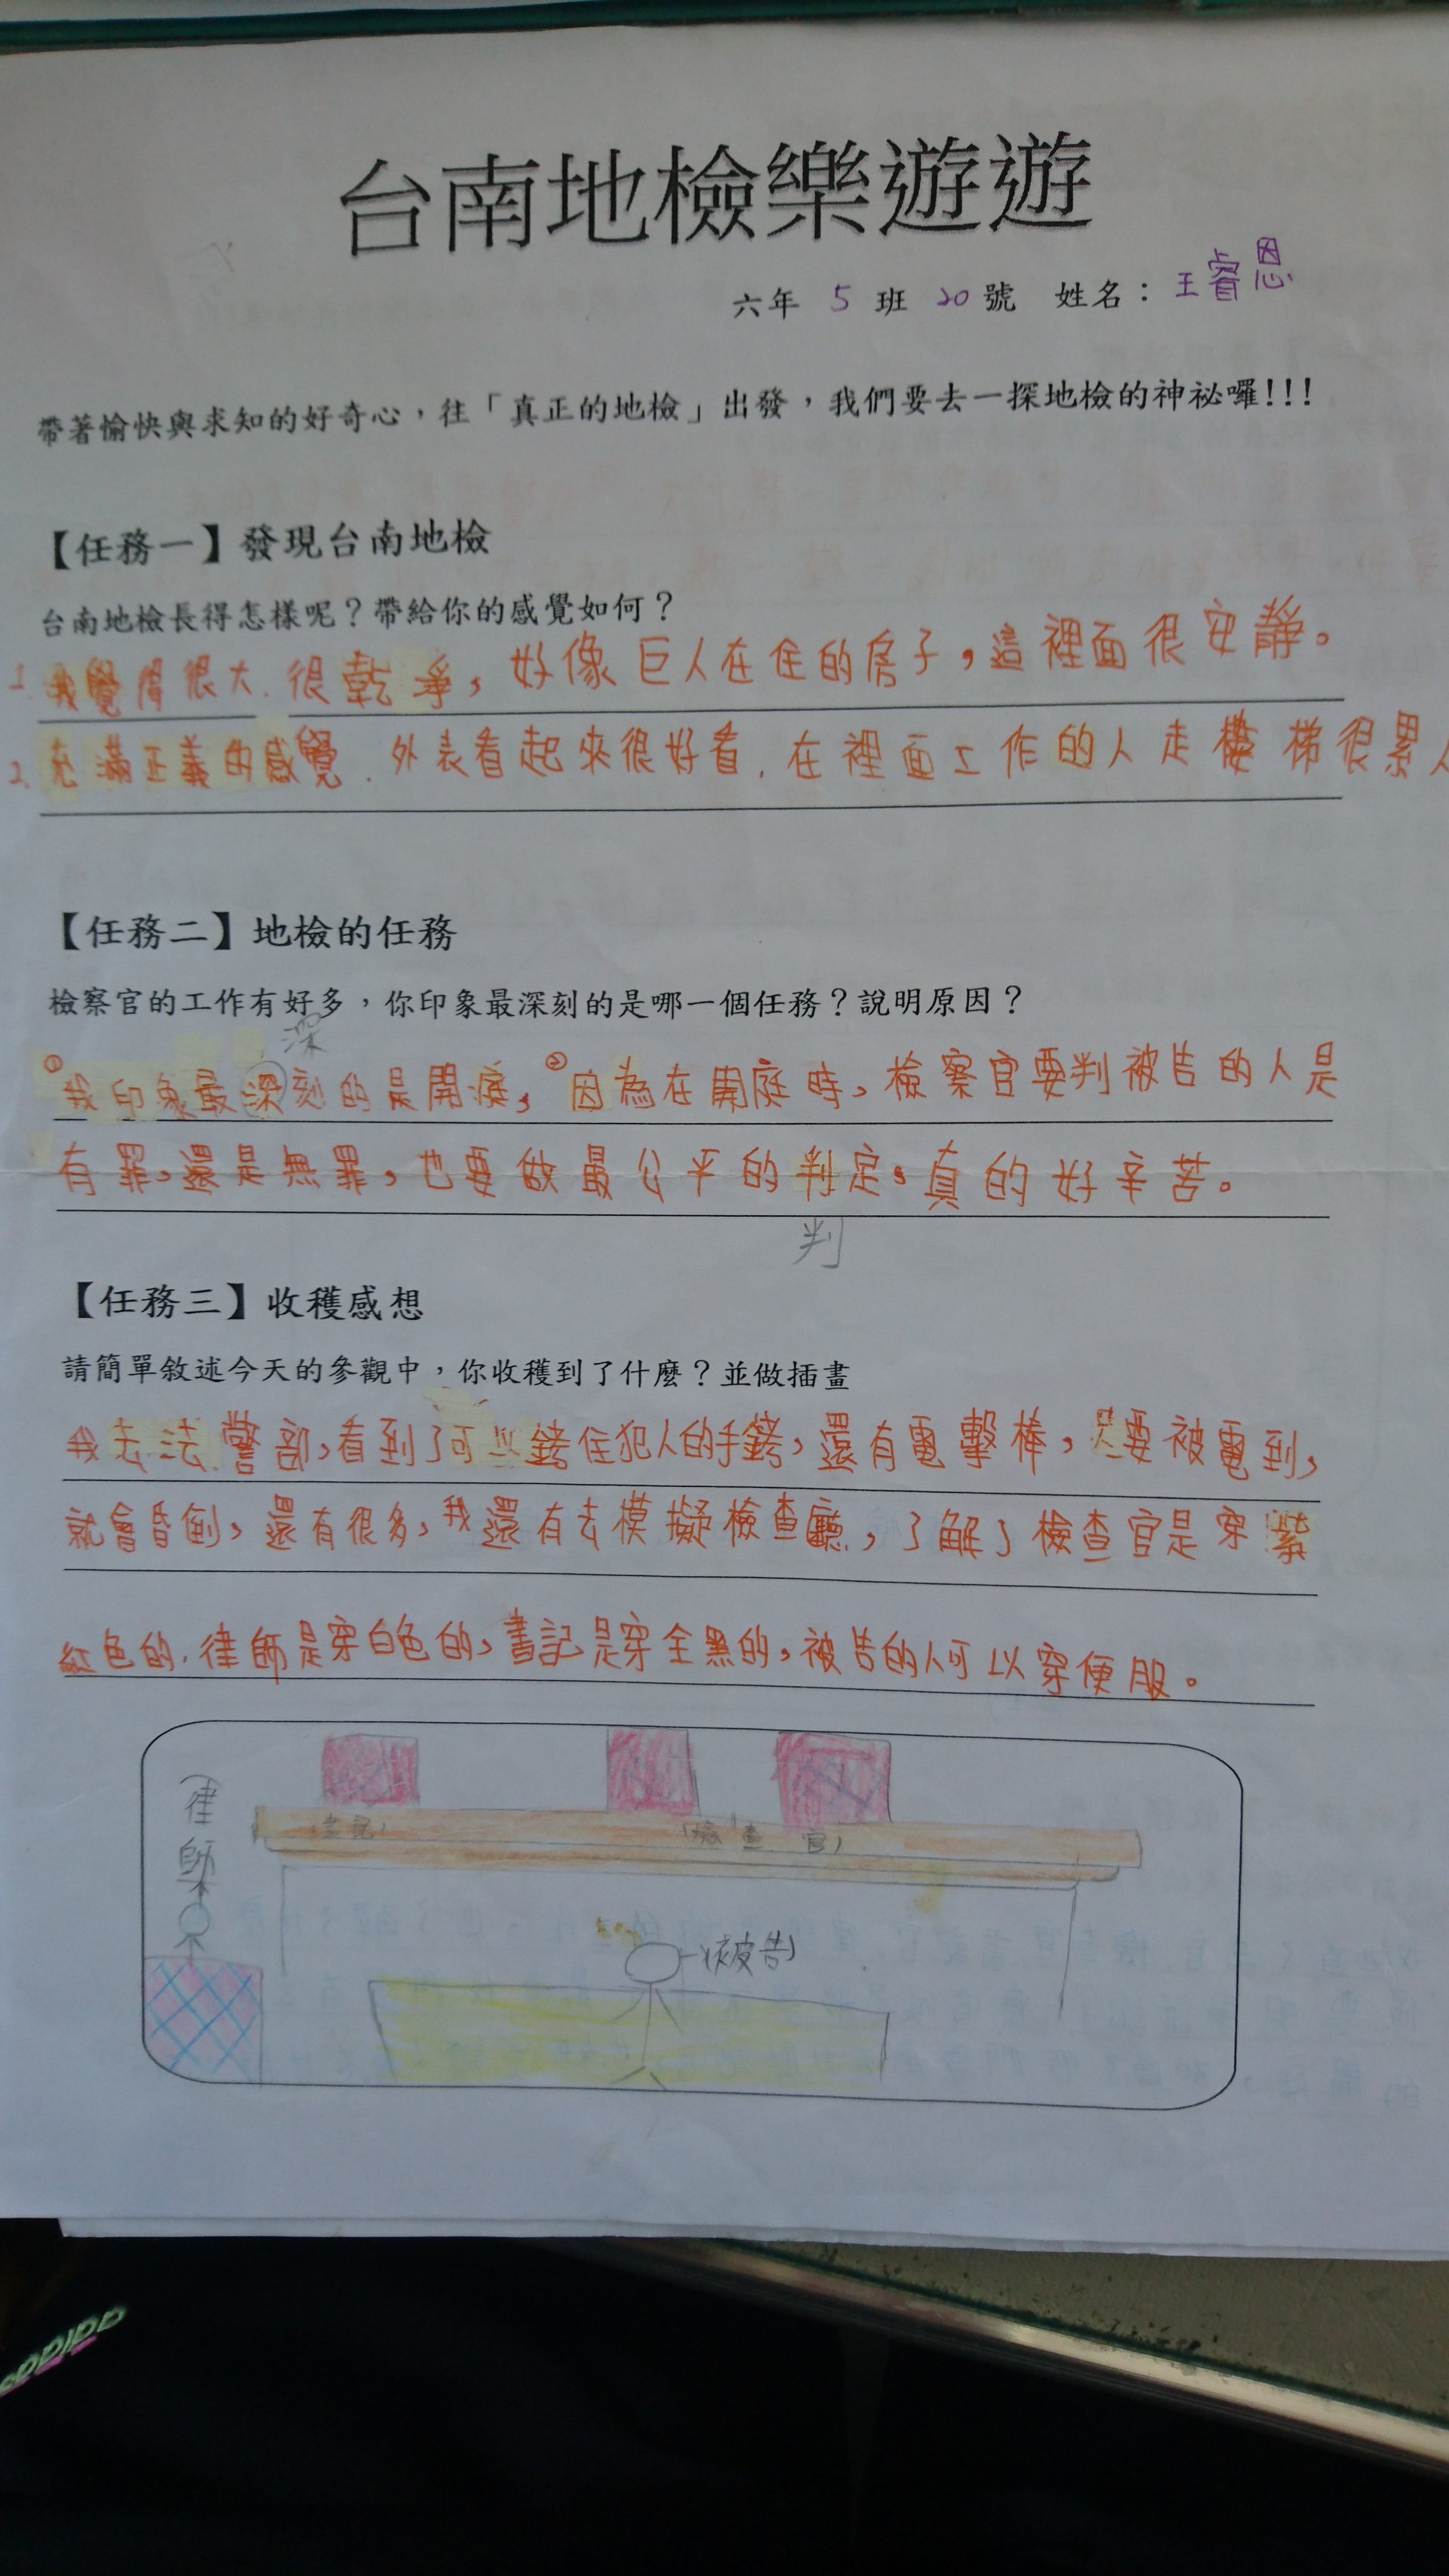 台南地檢樂遊遊
六年 5 班 20 號 姓名：王睿恩
帶著愉快與求知的好奇心，往「真正的地檢」出發，我們要去一探地檢的神祕囉!!!
【任務一】發現台南地檢
台南地檢長得怎樣呢？帶給你的感覺如何？
1. 我覺得很大.很乾淨，好像巨人在住的房子，這裡面很安靜。
2. 充滿正義的感覺.外表看起來很好看.在裡面工作的人走樓梯很累人
【任務二】地檢的任務
檢察官的工作有好多，你印象最深刻的是哪一個任務？說明原因？
深
①我印象最深刻的是開庭，②因為在開庭時，檢察官要判被告的人是
有罪，還是無罪，也要做最公平的判定，真的好辛苦。
判
【任務三】收穫感想
請簡單敘述今天的參觀中，你收穫到了什麼？並做插畫
我去法警部，看到了可以銬住犯人的手銬，還有電擊棒，只要被電到，
就會昏倒，還有很多，我還有去模擬檢查廳，了解了檢查官是穿紫
紅色的.律師是穿白色的，書記是穿全黑的，被告的人可以穿便服。
(律師
(書記)
(檢查官)
(被告)